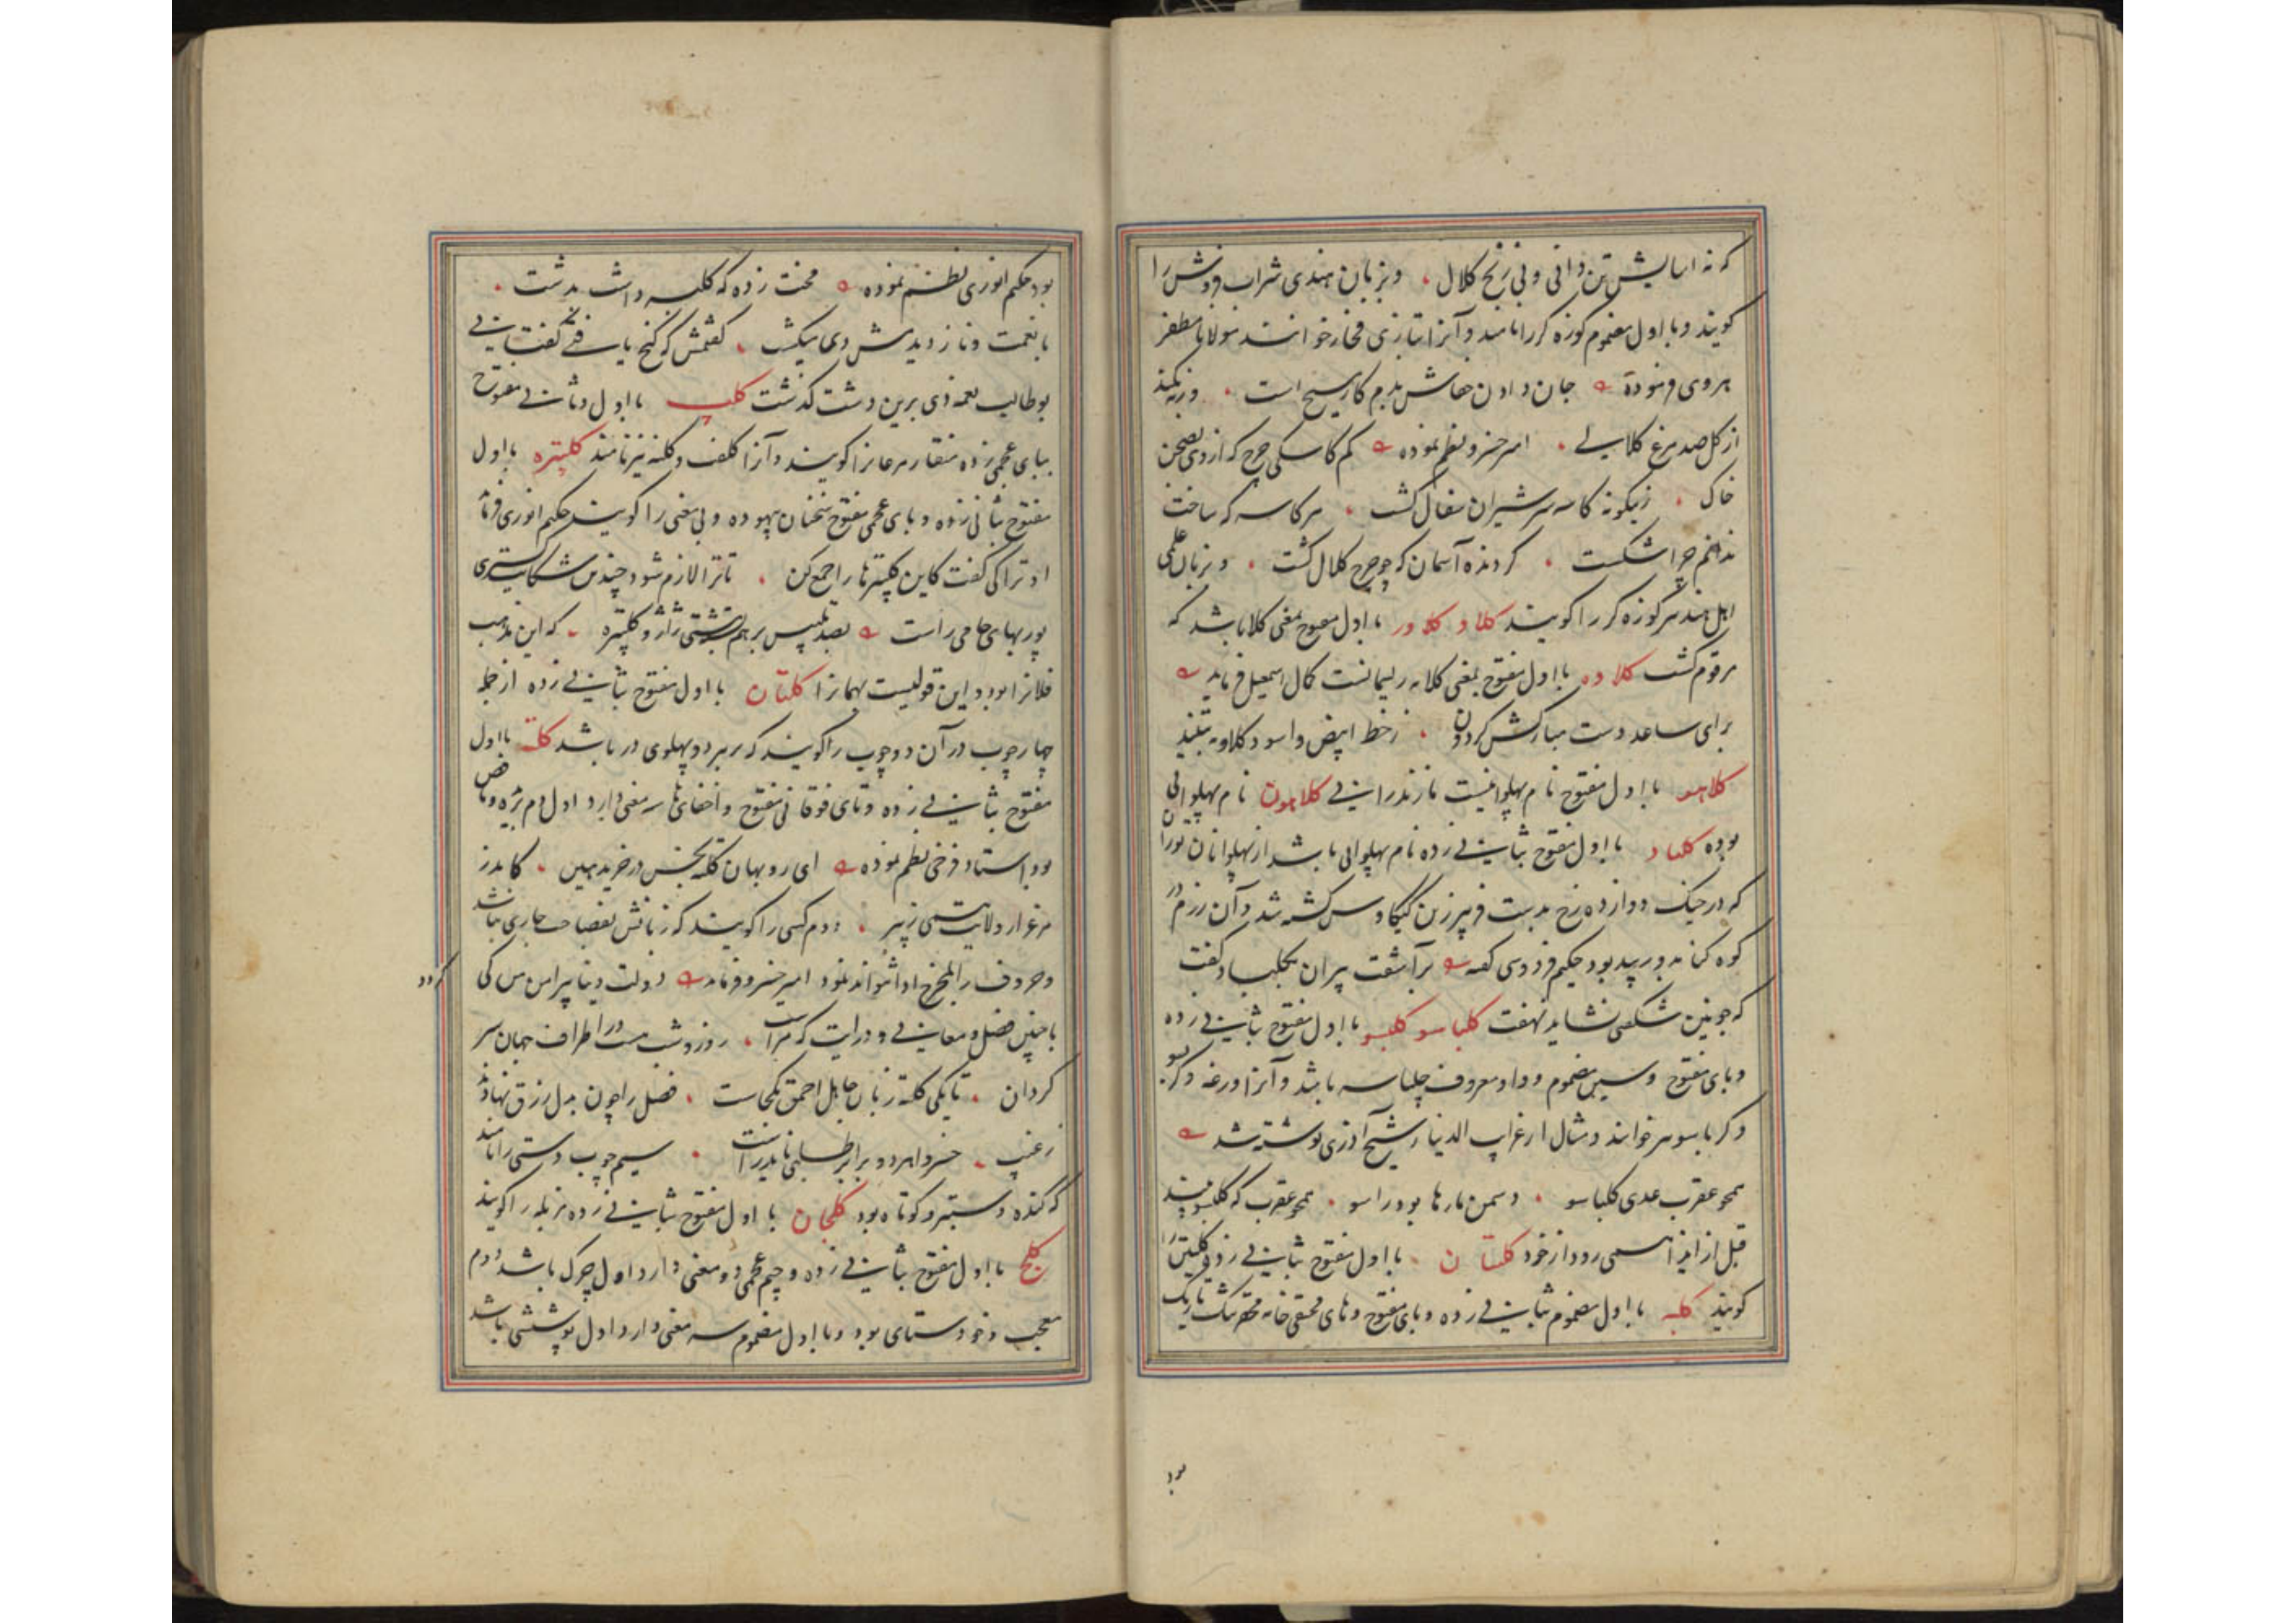 که نه اسایش تن دانی و نی رنج کلال . و بزبان هندی شراب فروش را
کویند و با اول مضموم کوزه کر را نامند و آنرا بتازی فخار خوانند مولانا مظفر
هروی فرموده جان دادن بدم کار مسیح است .
از کل صد مرغ کلالی . امیر خسرو نظم نموده کم کاسکی چرخ که از دی بصحن
خاک . زیکونه کاسه سر شیران سفال کشت . هر کاسه که ساخت
ندانم چرا شکست . کردنده آسمان که چو چرخ کلال کشت . و بزبان علمی
اهل هند نیز کوزه کر را کویند کلاو کلاور با اول مفتوح بمعنی کلا باشد که
مرقوم کشت کلاوه با اول مفتوح بمعنی کلابه ریسمانست کمال اسمعیل فرماید
برای ساعد دست مبارکش کردون . ز خط ابیض و اسود کلاوه
کلاهو با اول مفتوح نام پهلوانیست مازندرانی کلاهون نام پهلوانی
بوده کلباد با اول مفتوح بثانی زده نام پهلوانی باشد از پهلوانان توران
که در جنک دوازده رخ بدست فریبرز بن کیکاوس کشته شد و آن رزم در
کوه کنابد و ریبد بود حکیم فردوسی کفته برآشفت پیران بکلباد و کفت
که چونین شکفتی نشاید نهفت کلباسو کلبسو با اول مفتوح بثانی زده
و بای مفتوح و سین مضموم و واو معروف چلپاسه باشد و آنرا وزغه و کربسو
و کرباسو نیز خوانند و مثال از غرایب الدنیا شیخ آذری نوشته شد
همچو عقرب عدی کلباسو . دشمن مارها بود راسو . همچو عقرب که کلبسو بیند
قبل از ایذا همی رود از خود کلبتان . با اول مفتوح بثانی زده کلبتین را
کویند کلبه با اول مضموم بثانی زده و بای مفتوح و های مختفی خانه محقر تنک تاریک
بود
بود حکیم انوری نظم نموده محنت زده که کلبه داشت بدشت .
با نعمت و ناز دیدمش دی میکشت . کفتمش که کنج یافتی کفتا نی
بوطالب نعمه دی برین دشت کذشت کلپ با اول و ثانی مفتوح
ببای عجمی زده منقار مرغانرا کویند و آنرا کلف و کلفه نیز نامند کلپتره با اول
مفتوح بثانی زده و بای عجمی مفتوح سخنان بیهوده و بی معنی را کویند حکیم انوری فرماید
او ترا کی کفت کاین کلپترها را جمع کن . تا ترا لازم شود چندین شکایت کستری
پوربهای جامی راست بصد تلبیس بر هم ژاژ و کلپتره . که این مذهب
فلانرا بود و این قولیست بهمانرا کلتان با اول مفتوح بثانی زده از جمله
چهار چوب در آن دو چوب را کویند که بر هر دو پهلوی در باشد کلته با اول
مفتوح بثانی زده و تای فوقانی مفتوح و اخفای ها سه معنی دارد اول دم بریده و ناقص
بود استاد فرخی نظم نموده ای روبهان کلته بخس در خزید هین . کامد ز
مرغزار ولایت همی زئیر . دوم کسی را کویند که زبانش بفصاحت جاری نباشد
و حروف را بمخرج ادا نتواند نمود امیر خسرو فرماید دولت دنیا پرامن من کی کردد
با چنین فضل و معانی و درایت که مراست . روز و شب هست در اطراف جهان سر
کردان . تا یکی کلته زبان جاهل احمق بکجاست . فضل را چون بدل رزق نهاد
خسروا هر دو برابر طلبی نایدراست . سیم چوب دستی را نامند
که کنده و سطبر و کوتاه بود کلجان با اول مفتوح بثانی زده مزبله را کویند
کلچ با اول مفتوح بثانی زده و چیم عجمی دو معنی دارد اول چرک باشد دوم
معجب و خودستای بود و با اول مضموم سه معنی دارد اول پوششی باشد